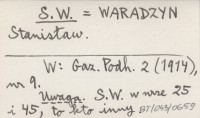 S.W. = WARADZYN
Stanisław.
W: Gaz. Podh. 2 (1914),
nr 9.
Uwaga. S.W. w nrze 25
i 45, to kto inny BJ/043/0659